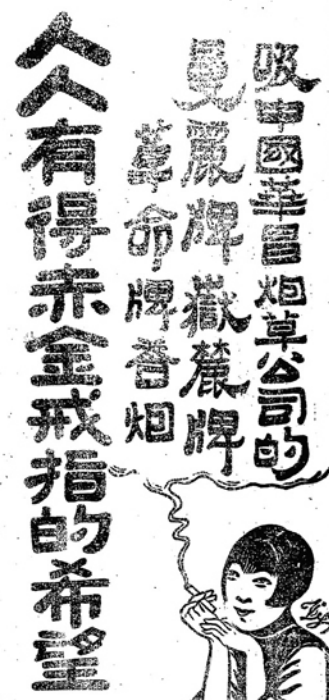 吸中國華昌烟草公司的
曼麗牌嶽麓牌
革命牌香烟
人人有得赤金戒指的希望